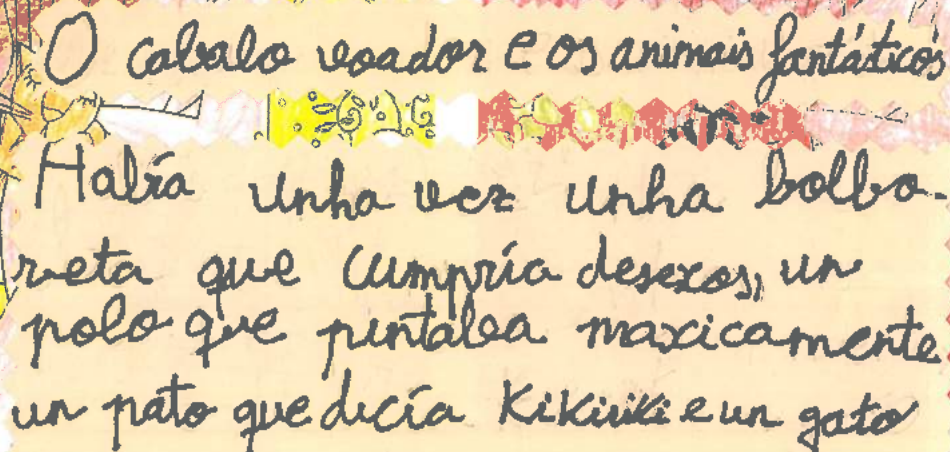 O cabalo voador e os animais fantáticos
Había unha vez unha bolbo-
reta que cumpría desexos, un
polo que pintaba maxicamente
un pato que dicía Kikiriki e un gato